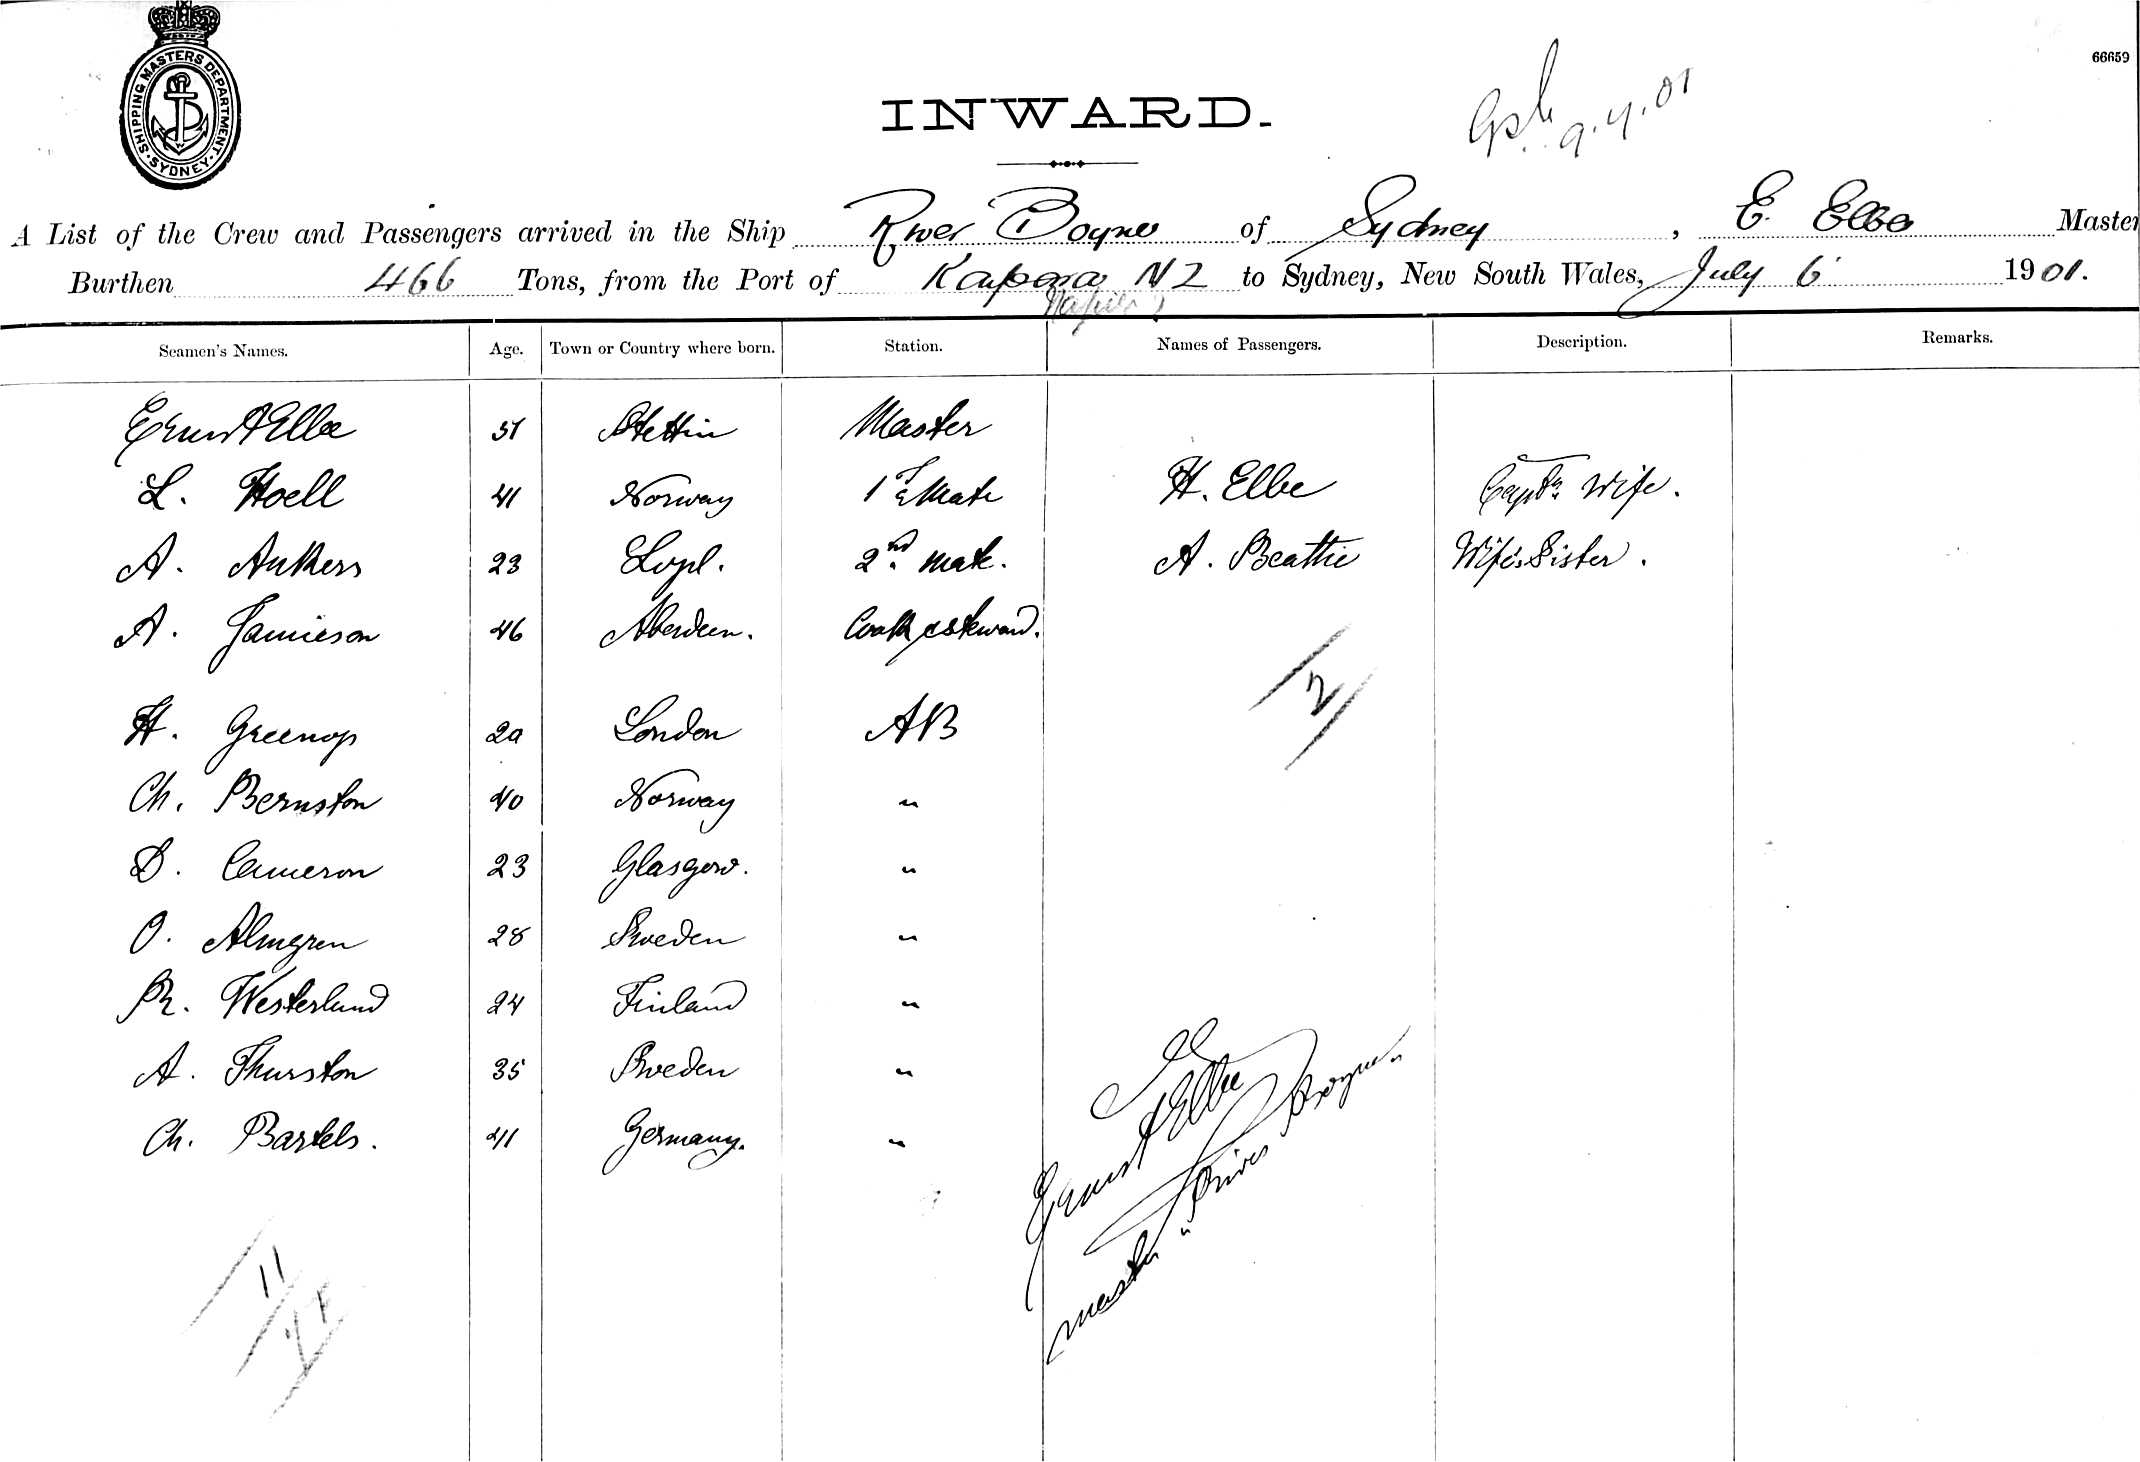 SHIPPING MASTERS DEPARTMENT · SYDNEY ·
66659
INWARD.
9.7.01
A List of the Crew and Passengers arrived in the Ship River Boyne of Sydney, E. Elbe Master
Burthen 466 Tons, from the Port of NZ to Sydney, New South Wales, July 6 1901.
Napier
Seamen's Names. Age. Town or Country where born. Station. Names of Passengers. Description. Remarks.
Ernst Elbe 51 Stettin Master
L. Hoell 41 Norway 1st Mate H. Elbe Captn Wife.
A. Ankers 23 Lvpl. 2nd Mate. A. Beattie Wife's Sister.
A. Jamieson 46 Aberdeen. Cook & Steward.
2
H. Greenop London AB
Ch. Bernston 40 Norway "
D. Cameron 23 Glasgow. "
O. Almgren 28 Sweden "
R. Westerlund 24 Finland "
A. Thurston 35 Sweden "
Ch. Bartels. 41 Germany. "
Ernst Elbe
master "River Boyne"
11